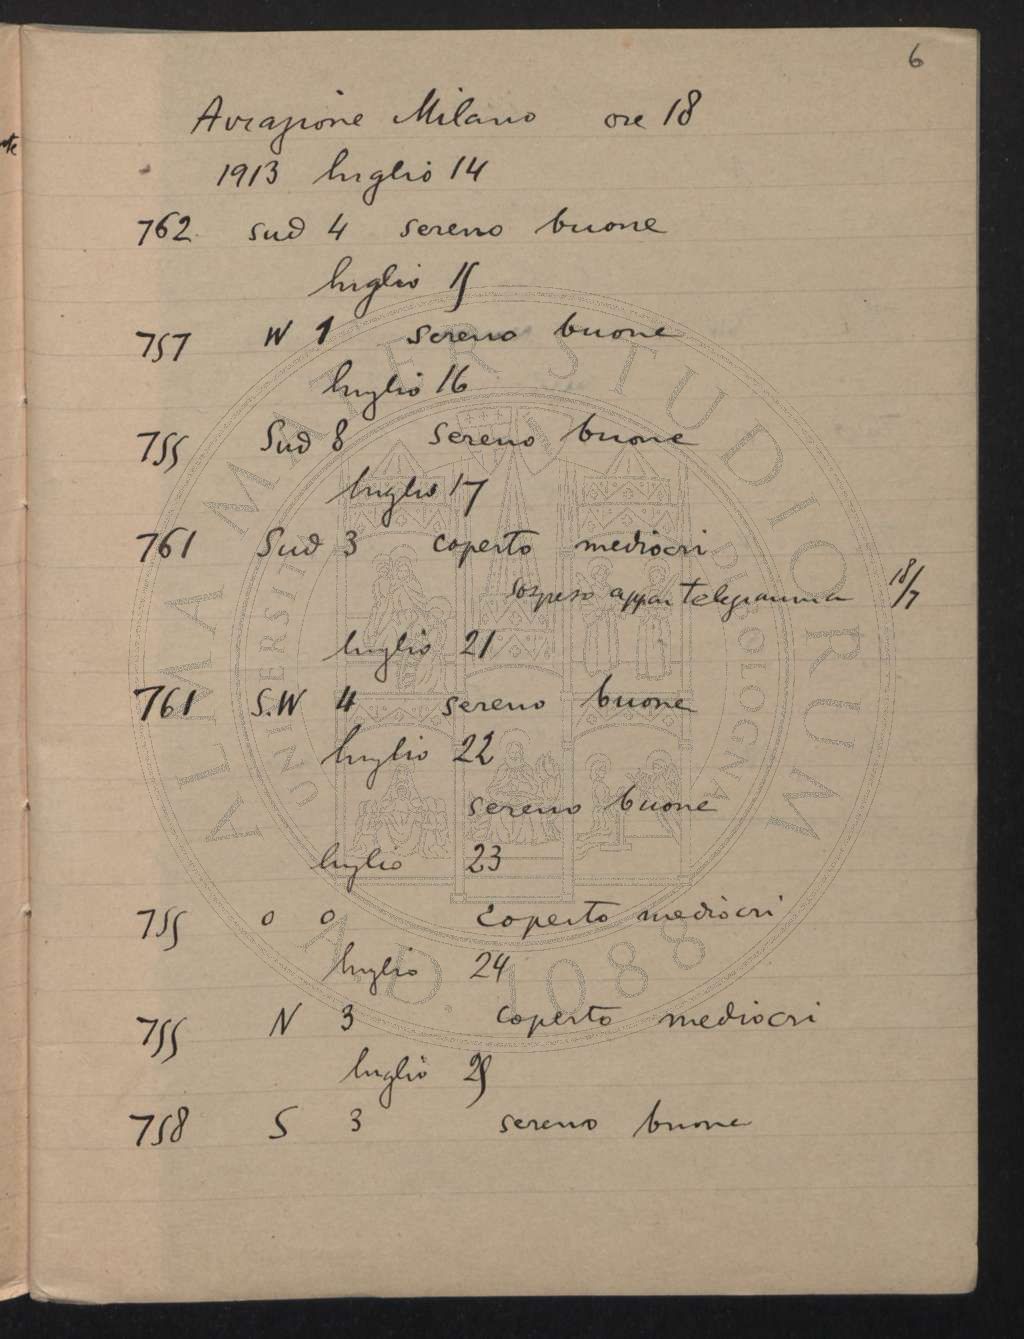 6
Aviazione Milano ore 18
1913 luglio 14
762 sud 4 sereno buone
luglio 15
757 W 1 sereno buone
luglio 16
755 Sud 8 sereno buone
luglio 17
761 Sud 3 coperto mediocri
sospeso telegramma 18/7
luglio 21
761 S.W 4 sereno buone
luglio 22
sereno buone
luglio 23
755 0 0 coperto mediocri
luglio 24
755 N 3 coperto mediocri
luglio 25
758 S 3 sereno buone
ALMA MATER STUDIORUM
A.D. 1088